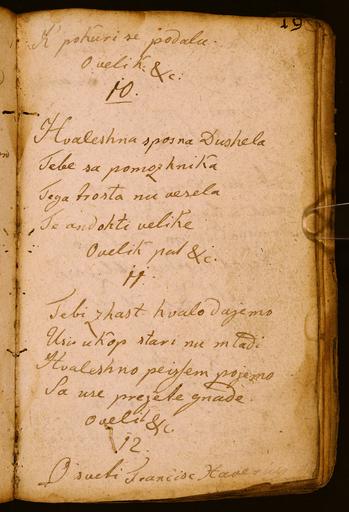 19
K' pokuri se podalu.
O velik. &c.
10.
Hvaleshna sposna Dushela
Tebe sa pomozhnika
Tega trosta nu vesela
Te andohti velike
O velik pat &c.
11
Tebi zhast hvalo dajemo
Usi ukop stari nu mladi
Hvaleshno pejssem pojemo
Sa use prejete gnade.
O velik &c.
12.
O sveti Francisc Xaverius